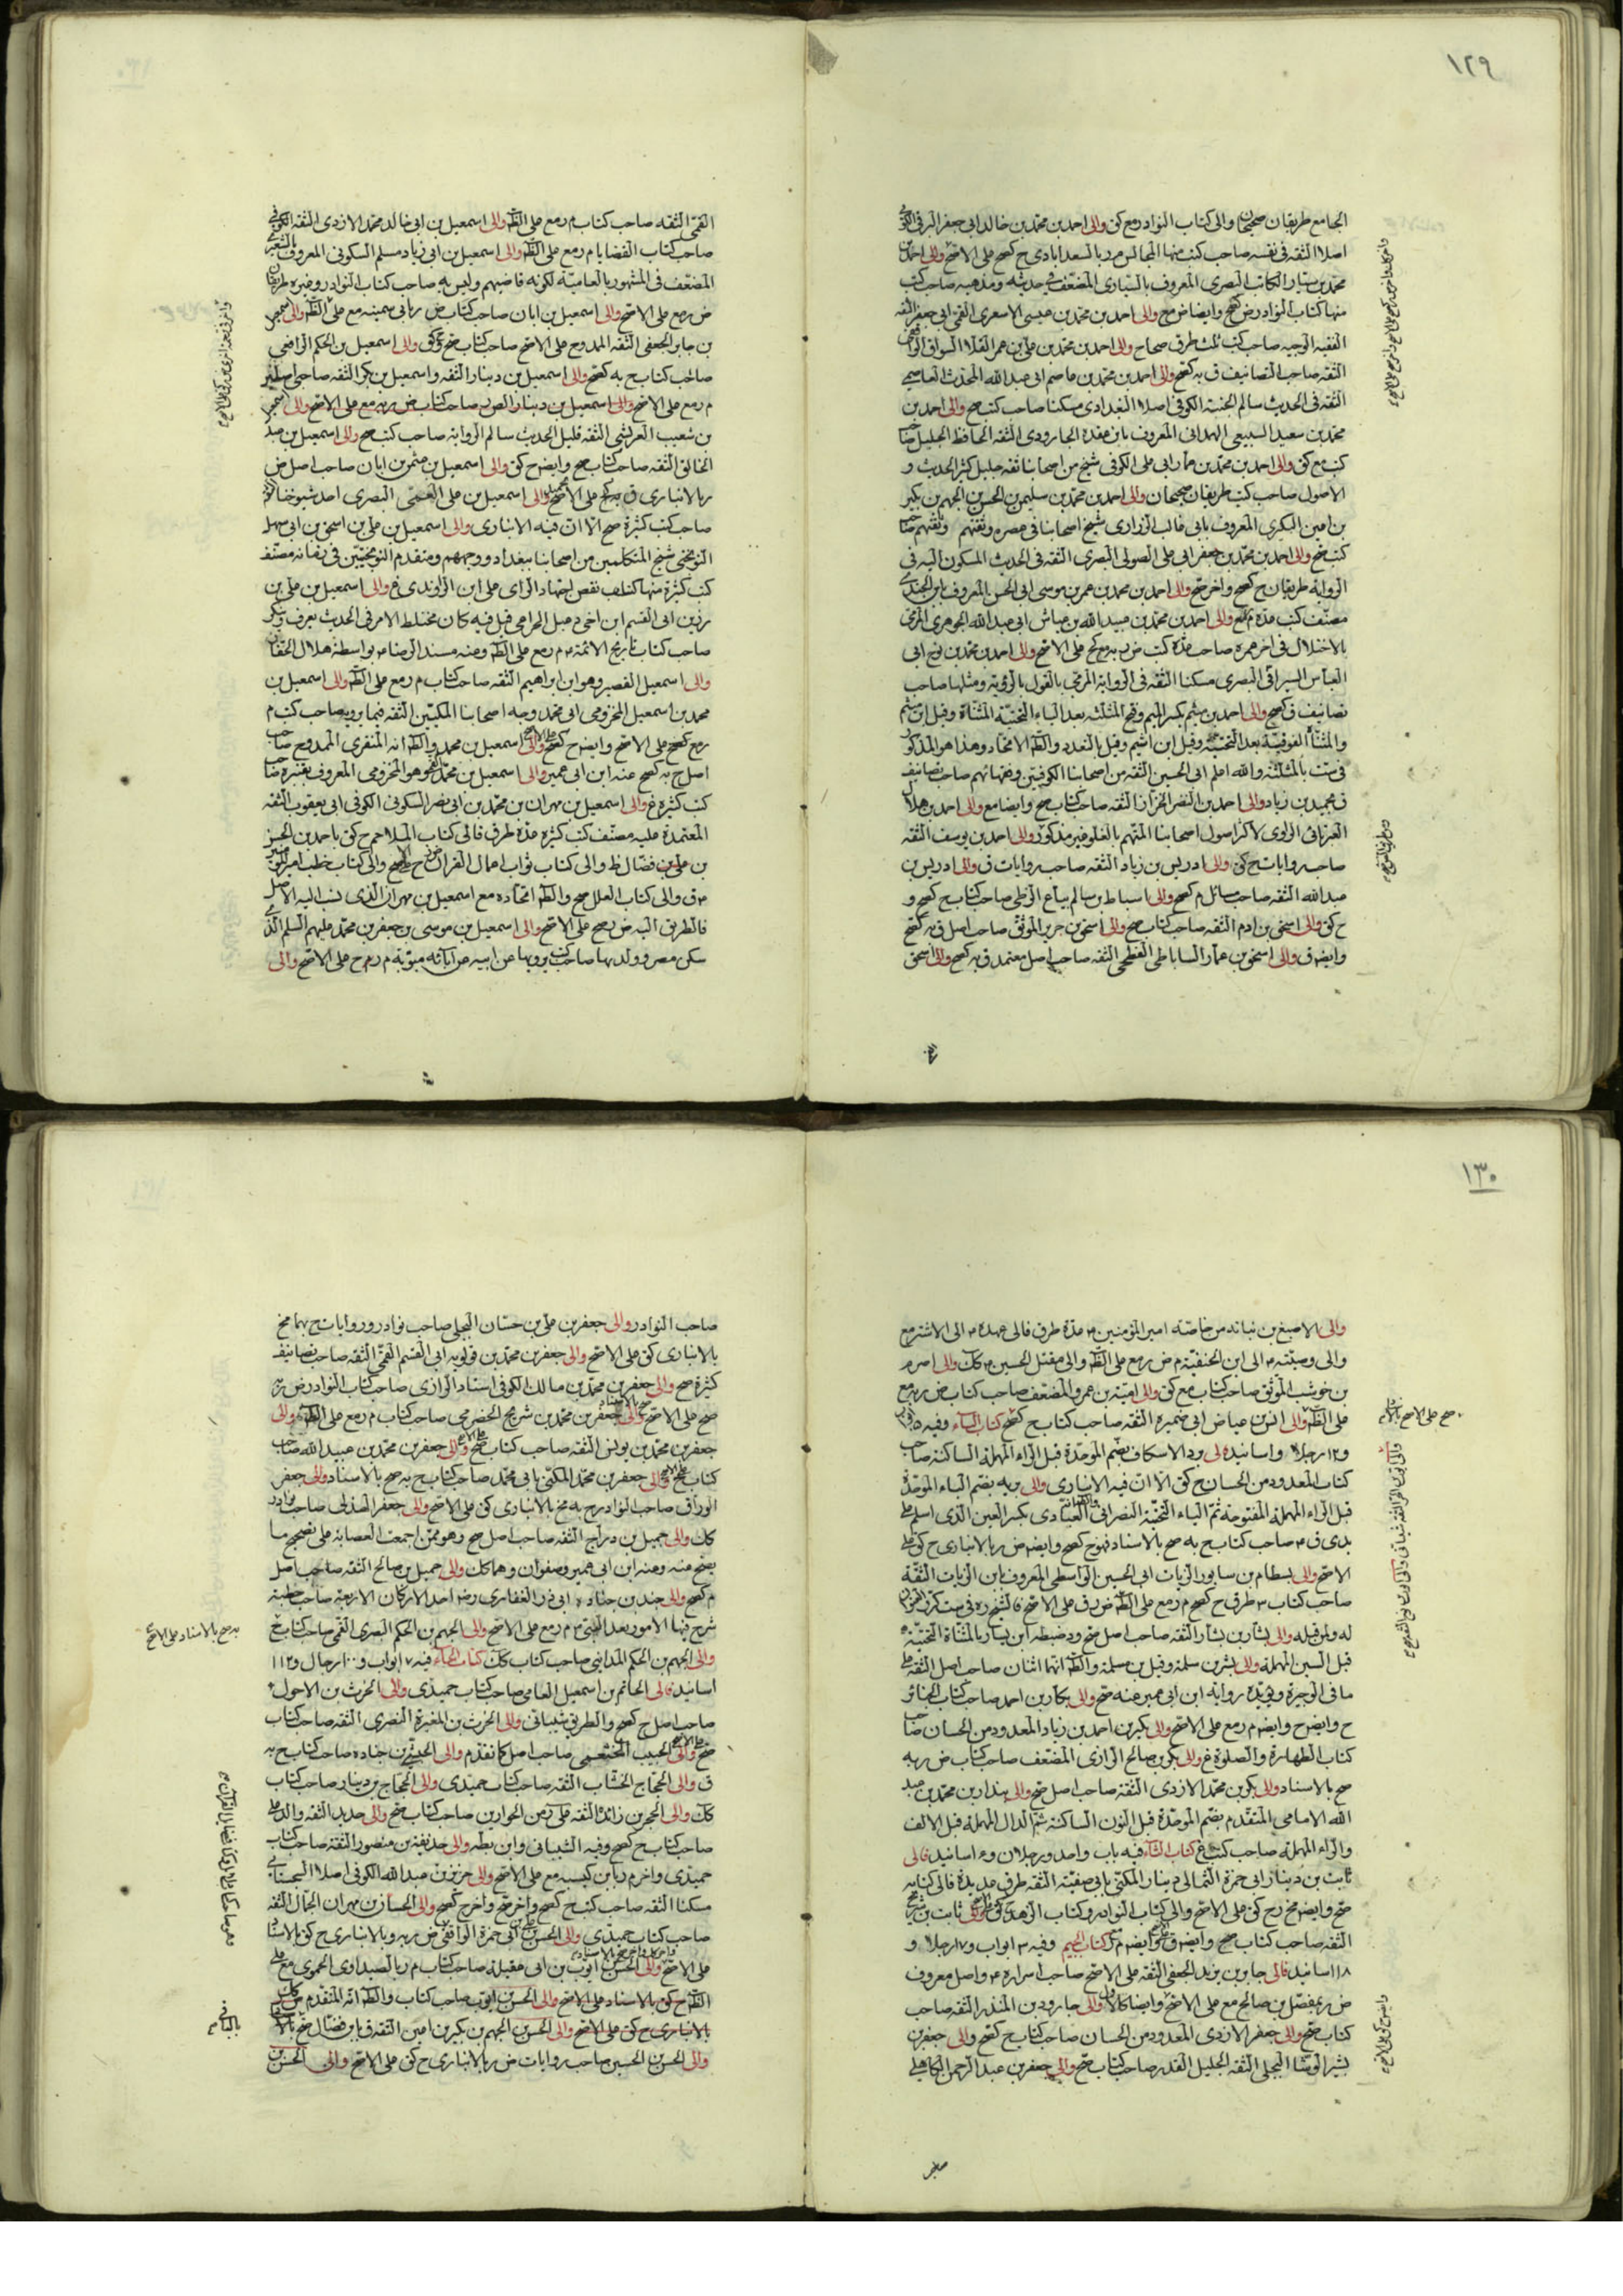 ١٢٩
الجامع طريقان صحيحان والى كتاب النوادر مع كق والى احمد بن محمد بن خالد ابى جعفر البرقى الكوفى
اصلا الثقه فى نفسه صاحب كتب منها المجالس م ر بالسعدابادى ح كصح على الاصح والى احمد بن
محمد بن سيار الكاتب البصرى المعروف بالسيارى المضعف فى حديثه ومذهبه صاحب كتب
منها كتاب النوادر ض كصح وايضا ض مح والى احمد بن محمد بن عيسى الاشعرى القمى ابى جعفر الثقه
الفقيه الوجيه صاحب كتب ثلث طرق صحاح والى احمد بن محمد بن على بن عمر القلا السواق الواقفى
الثقه صاحب التصانيف ق به كصح والى احمد بن محمد بن عاصم ابى عبد الله المحدث العاصمى
الثقه فى الحديث سالم الجنبة الكوفى اصلا البغدادى مسكنا صاحب كتب صح والى احمد بن
محمد بن سعيد السبيعى الهمدانى المعروف بابن عقدة الجارودى الثقه الحافظ الجليل صاحب
كتب مع كق والى احمد بن محمد بن عمار ابى على الكوفى شيخ من اصحابنا ثقه جليل كثير الحديث و
الاصول صاحب كتب طريقان صحيحان والى احمد بن محمد بن سليمن بن الحسن بن الجهم بن بكير
بن اعين البكرى المعروف بابى غالب الزرارى شيخ اصحابنا فى عصره وثقتهم وفقيههم صاحب
كتب صح والى احمد بن محمد بن جعفر ابى على الصولى البصرى الثقه فى الحديث المسكون اليه فى
الرواية طريقان ح كصح واخر صح والى احمد بن محمد بن عمر بن موسى ابى الحسن المعروف بابن الجندى
مصنف كتب عدة م مع والى احمد بن محمد بن عبيد الله بن عياش ابى عبد الله الجوهرى المرمى
بالاختلال فى اخر عمره صاحب عدة كتب ض ر به مع كح على الاصح والى احمد بن محمد بن نوح ابى
العباس السيرافى البصرى مسكنا الثقه فى الرواية المرمى بالقول بالرؤية ومثلها صاحب
تصانيف ق كصح والى احمد بن ميثم بكسر الميم وفتح المثلثه بعد الياء التحتية المثناة وقيل ابن ميتم
والمثناة الفوقية بعد التحتية وقيل ابن اشيم وقيل بالتعدد والظ الاتحاد وهذا هو المذكور
فى ست بالمثلثة والله اعلم ابى الحسين الثقه من اصحابنا الكوفيين وفقهائهم صاحب تصانيف
ق بحميد بن زياد والى احمد بن النضر الخزاز الثقه صاحب كتاب صح وايضا مع والى احمد بن هلال
العبرتائى الراوى لاكثر اصول اصحابنا المتهم بالغلو غير مذكور والى احمد بن يوسف الثقه
صاحب روايات ح كق والى ادريس بن زياد الثقه صاحب روايات ق والى ادريس بن
عبد الله الثقه صاحب مسائل م كصح والى اسباط بن سالم بياع الزطى صاحب كتاب ح كصح و
ح كق والى اسحق بن ادم الثقه صاحب كتاب صح والى اسحق بن جرير الموثق صاحب اصل ق به كصح
وايضا ق والى اسحق بن عمار الساباطى الفطحى الثقه صاحب اصل معتمد ق به كصح والى اسحق
القمى الثقه صاحب كتاب م ر مع على الظ والى اسمعيل بن ابى خالد محمد الازدى الثقه الكوفى
صاحب كتاب القضايا م ر مع على الظ والى اسمعيل بن ابى زياد مسلم السكونى المعروف بالشعيرى
المضعف فى المشهور بالعامية لكونه قاضيهم وليس به صاحب كتاب النوادر وغيره طريقان
ض ر مع على الاصح والى اسمعيل بن ابان صاحب كتاب ض ر بابى سمينه مع على الظ والى اسمعيل
بن جابر الجعفى الثقه الممدوح على الاصح صاحب كتاب صح وكق والى اسمعيل بن الحكم الرافعى
صاحب كتاب ح به كصح والى اسمعيل بن دينار الثقه واسمعيل بن بكر الثقه صاحبى اصلين
م ر مع على الاصح والى اسمعيل بن دينار الصرم صاحب كتاب ض ر به مع على الاصح والى اسمعيل
بن شعيب العريشى الثقه قليل الحديث سالم الرواية صاحب كتب صح والى اسمعيل بن عبد
الخالق الثقه صاحب كتاب صح وايضا ح كق والى اسمعيل بن عثمن بن ابان صاحب اصل ض
ر بالانبارى ق به كح على الاصح والى اسمعيل بن على العمى البصرى احد شيوخنا الثقه
صاحب كتب كثيرة صح الا ان فيه الانبارى والى اسمعيل بن على بن اسحق بن ابى سهل
النوبختى شيخ المتكلمين من اصحابنا ببغداد ووجههم ومتقدم النوبختيين فى زمانه مصنف
كتب كثيرة منها كتاب نقض اجتهاد الراى على ابن الراوندى غ والى اسمعيل بن على بن
رزين ابى القسم ابن اخى دعبل الخزاعى قيل فيه كان مختلط الامر فى الحديث يعرف وينكر
صاحب كتاب تاريخ الائمة م ر مع على الظ وعنه مسند الرضا بواسطة هلال الحفار
والى اسمعيل القصير وهو ابن ابراهيم الثقه صاحب كتاب م ر مع على الظ والى اسمعيل بن
محمد بن اسمعيل المخزومى ابى محمد وجه اصحابنا المكيين الثقه فيما يرويه صاحب كتب م
ر مع كصح على الاصح وايضا ح كصح والى اسمعيل بن محمد والظ انه المنقرى الممدوح صاحب
اصل ح به كصح عنه ابن ابى عمير والى اسمعيل بن محمد القمى وهو المخزومى المعروف بقنبرة صاحب
كتب كثيره غ والى اسمعيل بن مهران بن محمد بن ابى نصر السكونى الكوفى ابى يعقوب الثقه
المعتمدة عليه مصنف كتب كثيره عدة طرق فالى كتاب الملاحم ح كق باحمد بن الحسين
بن على بن فضال ظ والى كتاب ثواب اعمال القران ض ح كصح والى كتاب خطب امير المؤمنين
ق والى كتاب العلل صح والظ اتحاده مع اسمعيل بن مهران الذى نسب اليه الاصل
فالطريق اليه ض ر صح على الاصح والى اسمعيل بن موسى بن جعفر بن محمد عليهم السلم الذى
سكن مصر وولد بها صاحب كتب يرويها عن ابيه عن ابائه مبوبة م ر م ح على الاصح والى
١٣٠
والى الاصبغ بن نباته من خاصة امير المؤمنين عدة طرق فالى عهده الى الاشتر مع
والى وصيته الى ابن الحنفية م ض ر مع على الظ والى مقتل الحسين كك والى اصرم
بن حوشب الموثق صاحب كتاب مع كق والى امية بن عمرو المضعف صاحب كتاب ض ر به مع
على الظ والى انس بن عياض ابى ضميرة الثقه صاحب كتاب ح كصح كتاب الباء وفيه ٥ ابواب
و١٢ رجلا واسانيده الى برد الاسكاف بضم الموحدة قبل الراء المهملة الساكنة صاحب
كتاب المعدود من الحسان ح كق الا ان فيه الانبارى والى بريه بضم الباء الموحدة
قبل الراء المهملة المفتوحة ثم الياء التحتية النصرانى العبادى بكسر العين الذى اسلم على
يدى ق صاحب كتاب ح به صح بالاسناد فهو ح كصح وايضا ض ر بالانبارى ح كق على
الاصح والى بسطام بن سابور الزيات ابى الحسين الواسطى المعروف بابن الزيات الثقة
صاحب كتاب ٣ طرق ح كصح م ر مع على الظ ض ر ق على الاصح
له ولمن قبله والى بشار بن يسار الثقه صاحب اصل صح ود ضبطه ابن يسار بالمثناة التحتية
قبل السين المهملة والى بشر بن سلمة وقيل بن مسلمة والظ انهما اثنان صاحب اصل الثقه على
ما فى الوجيزة ويؤيده رواية ابن ابى عمير عنه صح والى بكار بن احمد صاحب كتاب الجنائز
ح وايضا ح وايضا م ر مع على الاصح والى بكر بن احمد بن زياد المعدود من الحسان صاحب
كتاب الطهارة والصلوة غ والى بكر بن صالح الرازى المضعف صاحب كتاب ض ر به
صح بالاسناد والى بكر بن محمد الازدى الثقه صاحب اصل صح والى بندار بن محمد بن عبد
الله الامامى المتقدم بضم الموحدة قبل النون الساكنة ثم الدال المهملة قبل الالف
والراء المهملة صاحب كتب غ كتاب الثاء فيه باب واحد ورجلان و٤ اسانيد فالى
ثابت بن دينار ابى حمزة الثمالى م ينار المكنى بابى صفية الثقه طرق عديدة فالى كتابه
صح وايضا صح ر ح كق على الاصح والى كتاب النوادر وكتاب الزهد كق والى ثابت بن شريح
الثقه صاحب كتاب صح وايضا ق وايضا م كتاب الجيم وفيه ٣ ابواب و١٧ رجلا و
١١٨ اسانيد فالى جابر بن يزيد الجعفى الثقه على الاصح صاحب اسراره واصل معروف
ض ر بمفضل بن صالح مع على الاصح وايضا كالاول والى جارود بن المنذر الثقه صاحب
كتاب صح والى جعفر الازدى المعدود من الحسان صاحب كتاب ح كصح والى جعفر بن
بشير الوشا البجلى الثقه الجليل القدر صاحب كتاب صح والى جعفر بن عبد الرحمن الكاهلى
صاحب النوادر والى جعفر بن على بن حسان البجلى صاحب نوادر وروايات ح بهما صح
بالانبارى كق على الاصح والى جعفر بن محمد بن قولويه ابى القسم القمى الثقه صاحب تصانيف
كثيرة صح والى جعفر بن محمد بن مالك الكوفى استاد الرازى صاحب كتاب النوادر ض ر به
صح على الاصح والى جعفر بن محمد بن شريح الحضرمى صاحب كتاب م ر مع على الظ والى
جعفر بن محمد بن يونس الثقه صاحب كتاب صح والى جعفر بن محمد بن عبيد الله صاحب
كتاب صح والى جعفر بن محمد المكنى بابى محمد صاحب كتاب ح به صح بالاسناد والى جعفر
الوراق صاحب النوادر ح به صح بالانبارى كق على الاصح والى جعفر الهذلى صاحب نوادر
كك والى جميل بن دراج الثقه صاحب اصل صح وهو ممن اجمعت العصابة على تصحيح ما
يصح عنه وعنه ابن ابى عمير وصفوان وهما كك والى جميل بن صالح الثقه صاحب اصل
م كصح والى جندب بن جناده ابى ذر الغفارى رض احد الاركان الاربعة صاحب خطبة
شرح فيها الامور بعد النبى م ر مع على الاصح والى الجهم بن الحكم البصرى القمى صاحب كتاب
والى الجهم بن الحكم المداينى صاحب كتاب كك كتاب الحاء فيه ١٧ ابواب و١٠٠ رجال و١١٢
اسانيد فالى الحاتم بن اسمعيل العامى صاحب كتاب حميدى والى الحرث بن الاحول
صاحب اصل ح كصح والطريق شيبانى والى الحرث بن المغيرة النصرى الثقه صاحب كتاب
صح والى الحبيب الخثعمى صاحب اصل كما تقدم والى الحبشى بن جناده صاحب كتاب ح به
ق والى الحجاج الخشاب الثقه صاحب كتاب حميدى والى الحجاج بن دينار صاحب كتاب
كك والى الحجر بن زائدة الثقه على ومن الحوارين صاحب كتاب صح والى حديد الثقه والد على
صاحب كتاب ح كصح وفيه الشيبانى وابن بطه والى حذيفة بن منصور الثقه صاحب كتاب
حميدى واخر م ر بابن كبيسه مع على الاصح والى حريز بن عبد الله الكوفى اصلا السجستانى
مسكنا الثقه صاحب كتب ح كصح واخر صح واخر ح كصح والى الحسان بن مهران الجمال الثقه
صاحب كتاب حميدى والى الحسن بن ابى حمزة الواقفى ض ر به وبالانبارى ح كق بالاسناد
على الاصح والى الحسن بن ايوب بن ابى عقيلة صاحب كتاب م ر بالصيداوى الحموى مع على
الظ ح كق بالاسناد على الاصح والى الحسن بن ايوب صاحب كتاب والظ انه المتقدم ض كك
بالانبارى ح كق على الاصح والى الحسن بن الجهم بن بكير بن اعين الثقه ق بابن فضال صح
والى الحسن بن الحسين صاحب روايات ض ر بالانبارى ح كق على الاصح والى الحسن بن